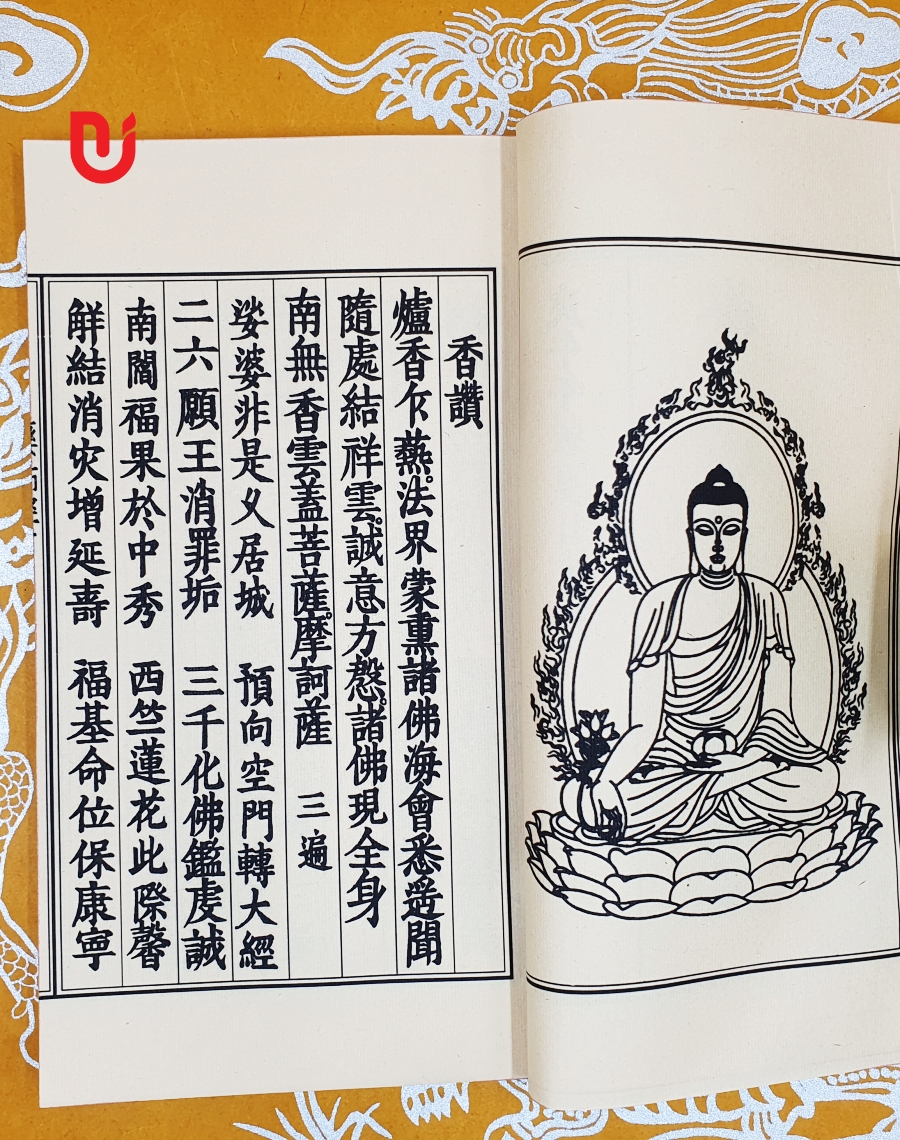 香讚
爐香乍爇。法界蒙熏諸佛海會悉遙聞
隨處結祥雲。誠意方慇。諸佛現全身
南無香雲蓋菩薩。摩訶薩 三遍
娑婆非是乂居城 預向空門轉大經
二六願王消罪垢 三千化佛鑑虔誠
南閻福果於中秀 西竺蓮花此際馨
解結消灾增延壽 福基命位保康寧